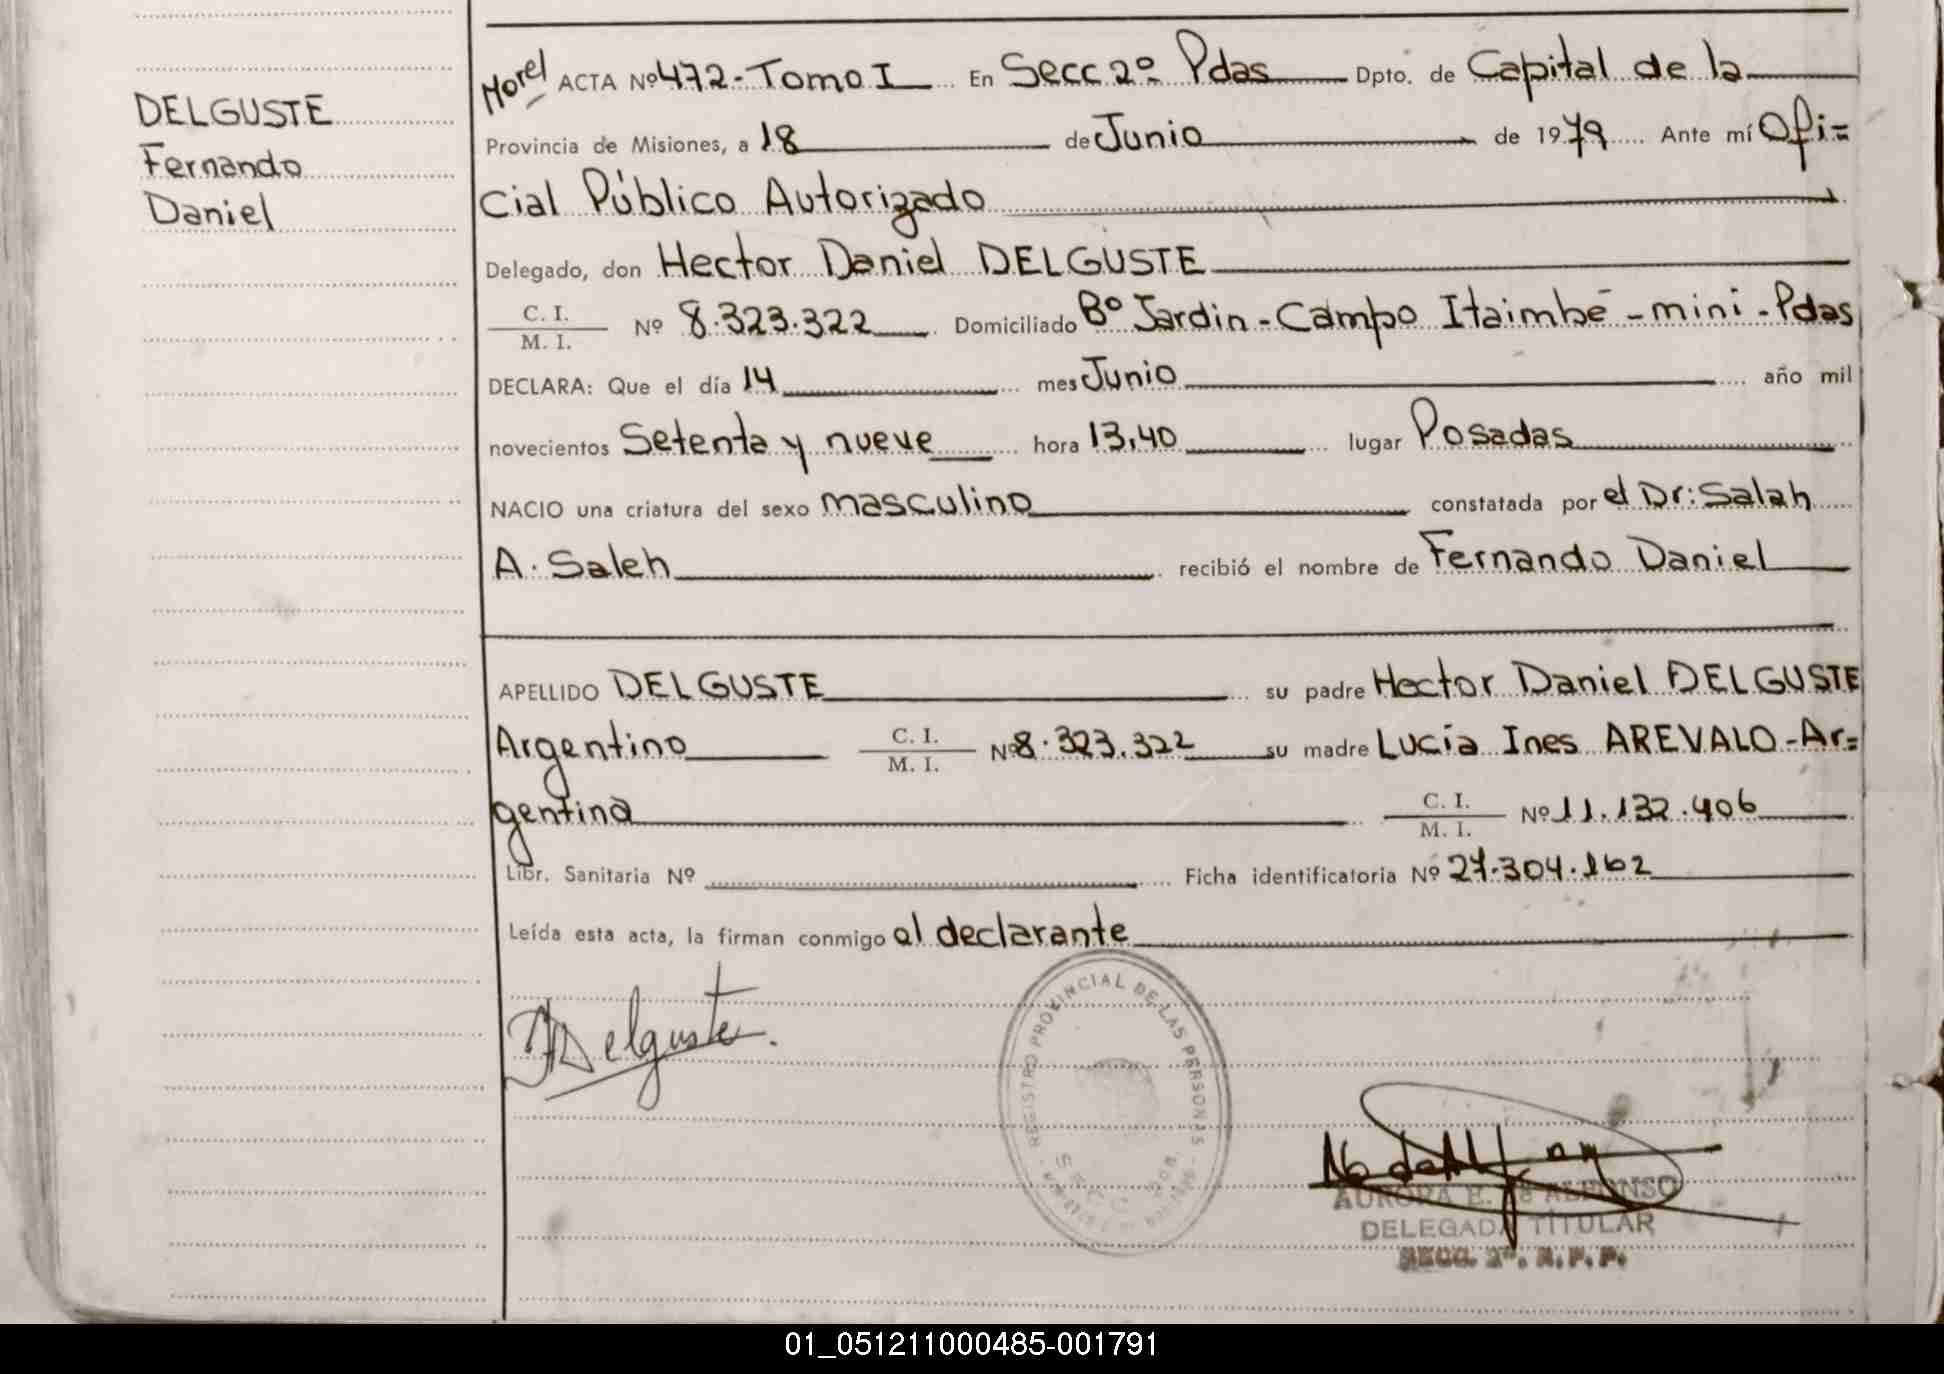 DELGUSTE
Fernando
Daniel
Morel ACTA Nº 472-Tomo I En Secc 2º Pdas Dpto. de Capital de la
Provincia de Misiones, a 18 de Junio de 1979 Ante mí Ofi=
cial Público Autorizado
Delegado, don Hector Daniel DELGUSTE
C. I.
M. I. Nº 8.323.322 Domiciliado Bº Jardin-Campo Itaimbé-mini-Pdas
DECLARA: Que el día 14 mes Junio año mil
novecientos Setenta y nueve hora 13,40 lugar Posadas
NACIO una criatura del sexo masculino constatada por el Dr: Salah
A. Saleh recibió el nombre de Fernando Daniel
APELLIDO DELGUSTE su padre Hector Daniel DELGUSTE
Argentino C. I.
M. I. Nº 8.323.322 su madre Lucía Ines AREVALO-Ar=
gentina C. I.
M. I. Nº 11.132.406
Libr. Sanitaria Nº Ficha identificatoria Nº 27.304.162
Leída esta acta, la firman conmigo el declarante
Delguste
REGISTRO PROVINCIAL DE LAS PERSONAS
AURORA E. de ALFONSO
DELEGADA TITULAR
SECC. 2ª. R. P. P.
01_051211000485-001791